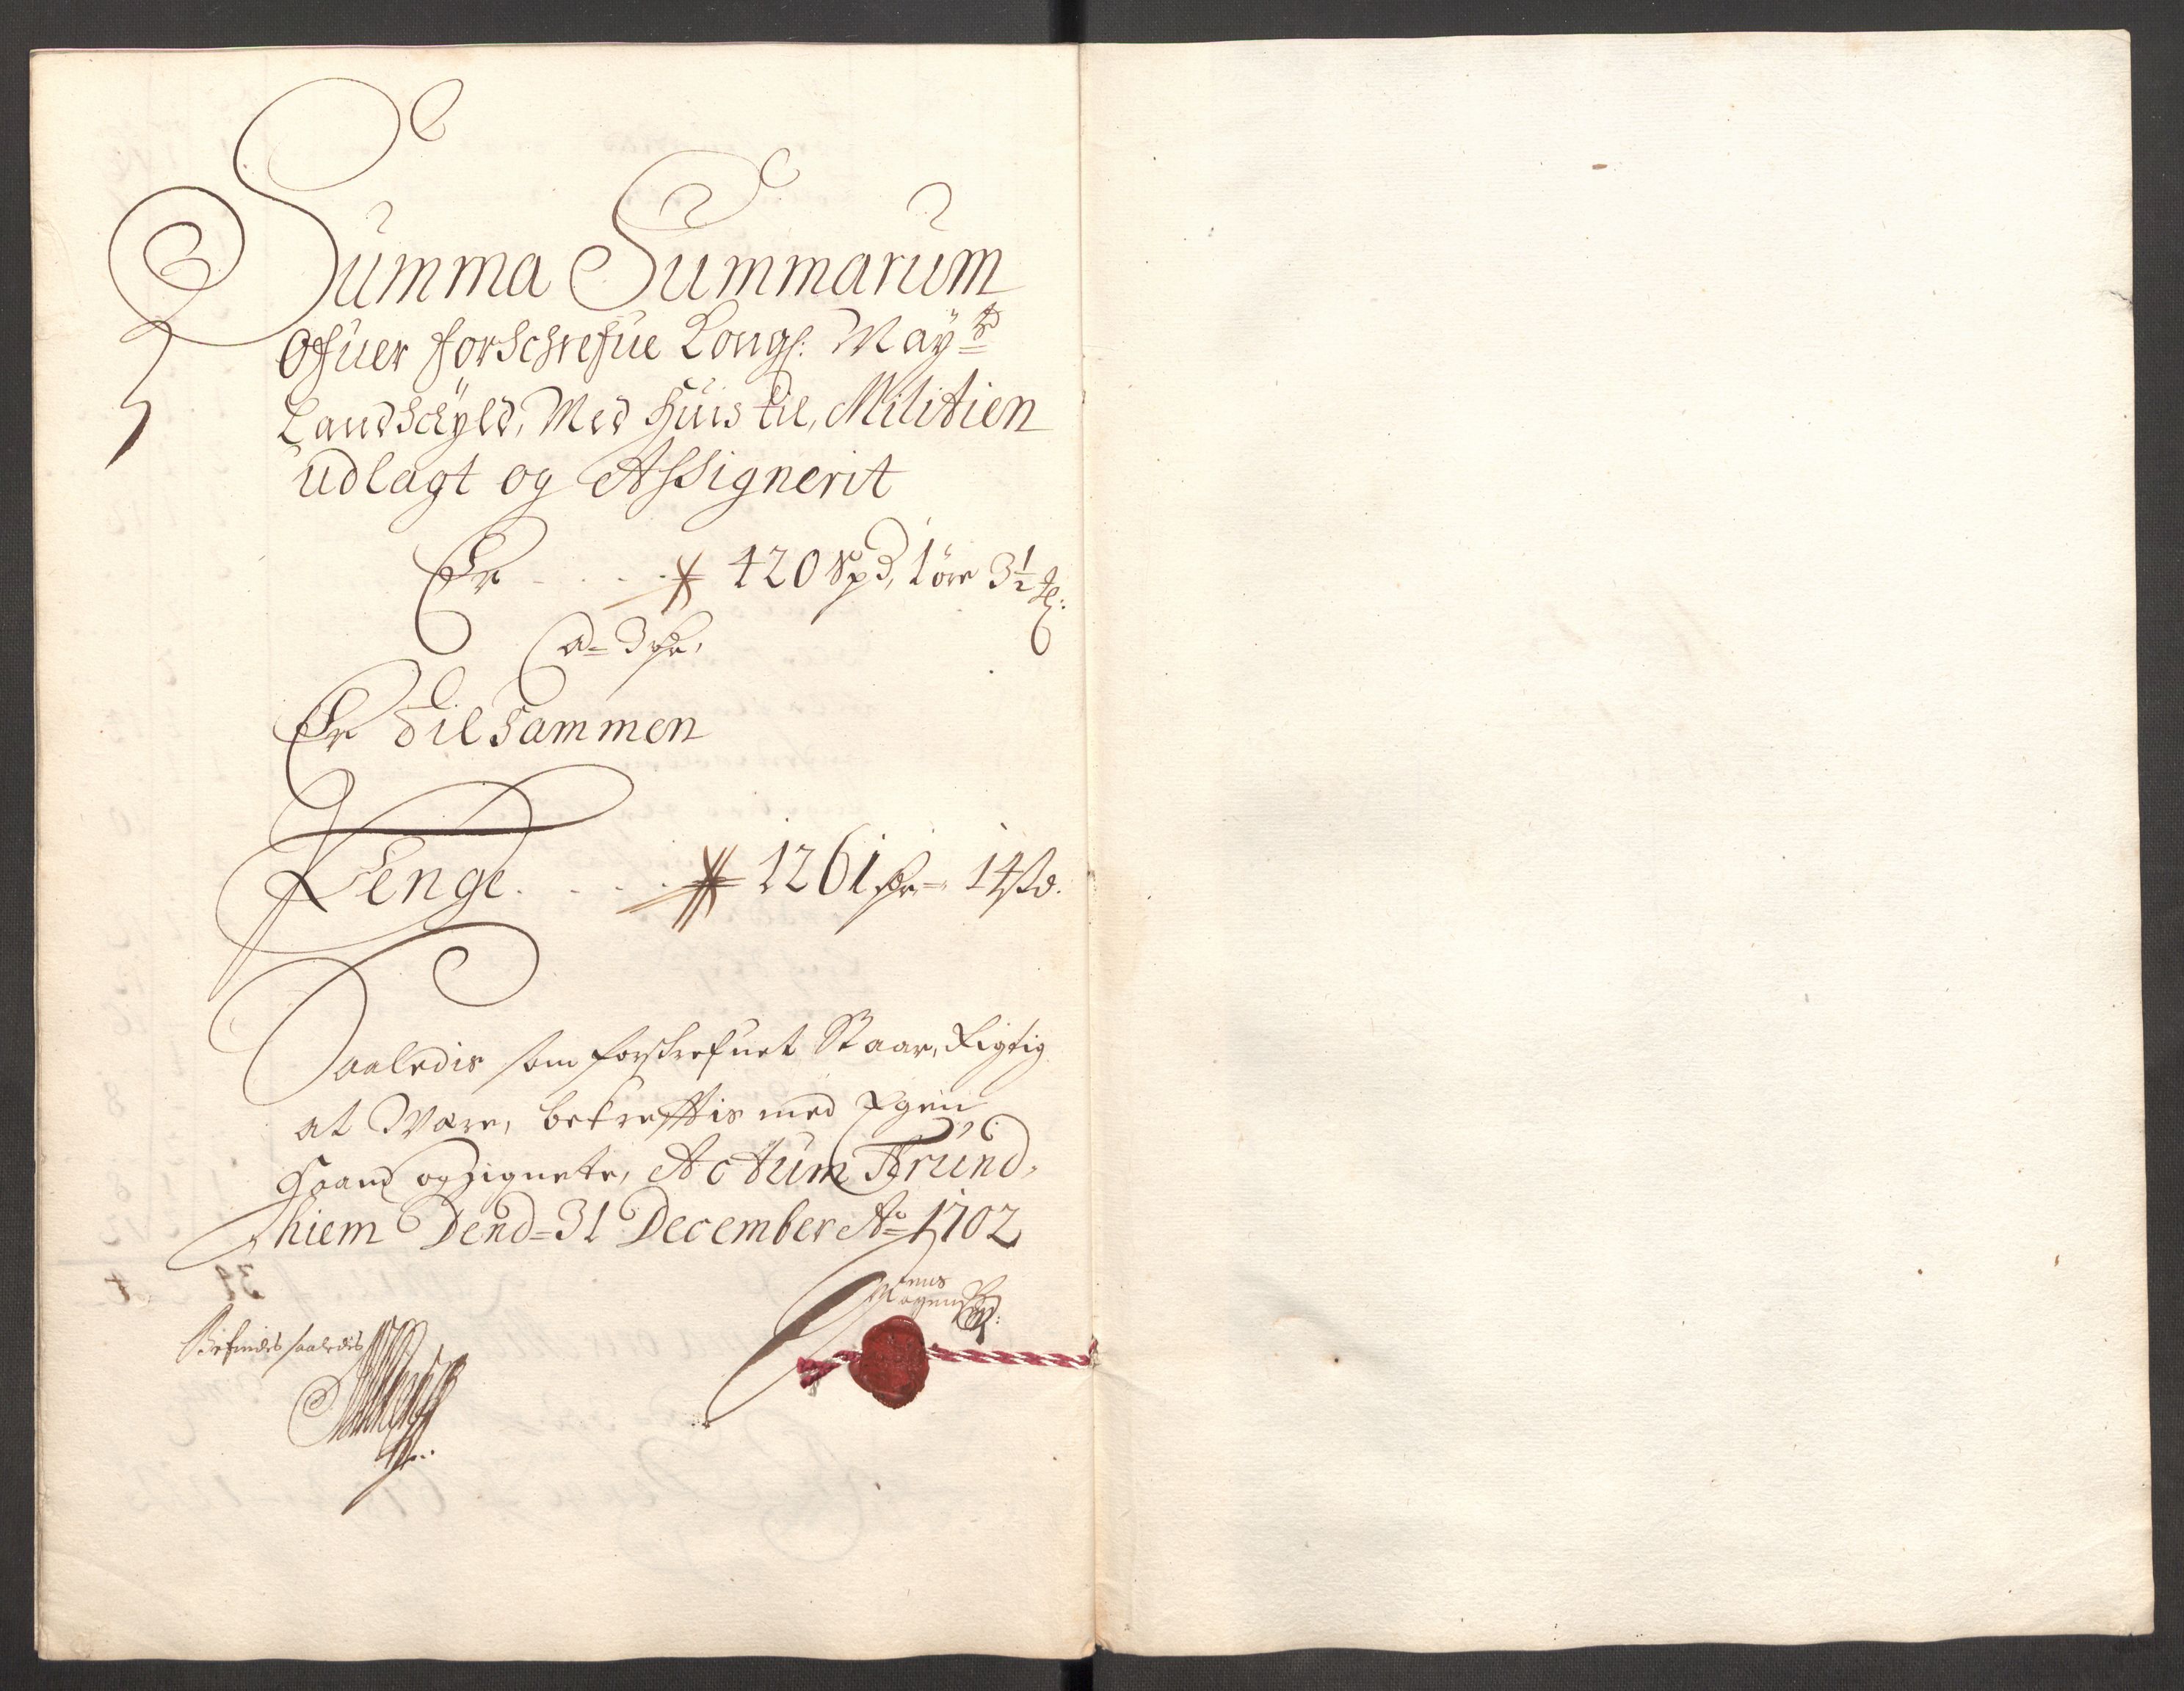 Summa Summarum
Ofuer forschrefue Kongl: May^ts
Landschyld, Med Huis til, Militien
udlagt og Assignerit
Er 420 Spd, 1 öre 3½
a= 3 
Er tilsammen
Penge 1261 14
Saaledis som forskrefuet Staar, Rigtig
at Være, bekrefftis med Egen
Haand og Zignete, Actum Trund,
hiem Dend= 31 December A^o= 1702
Jens
Mogens
Befindes saaledis